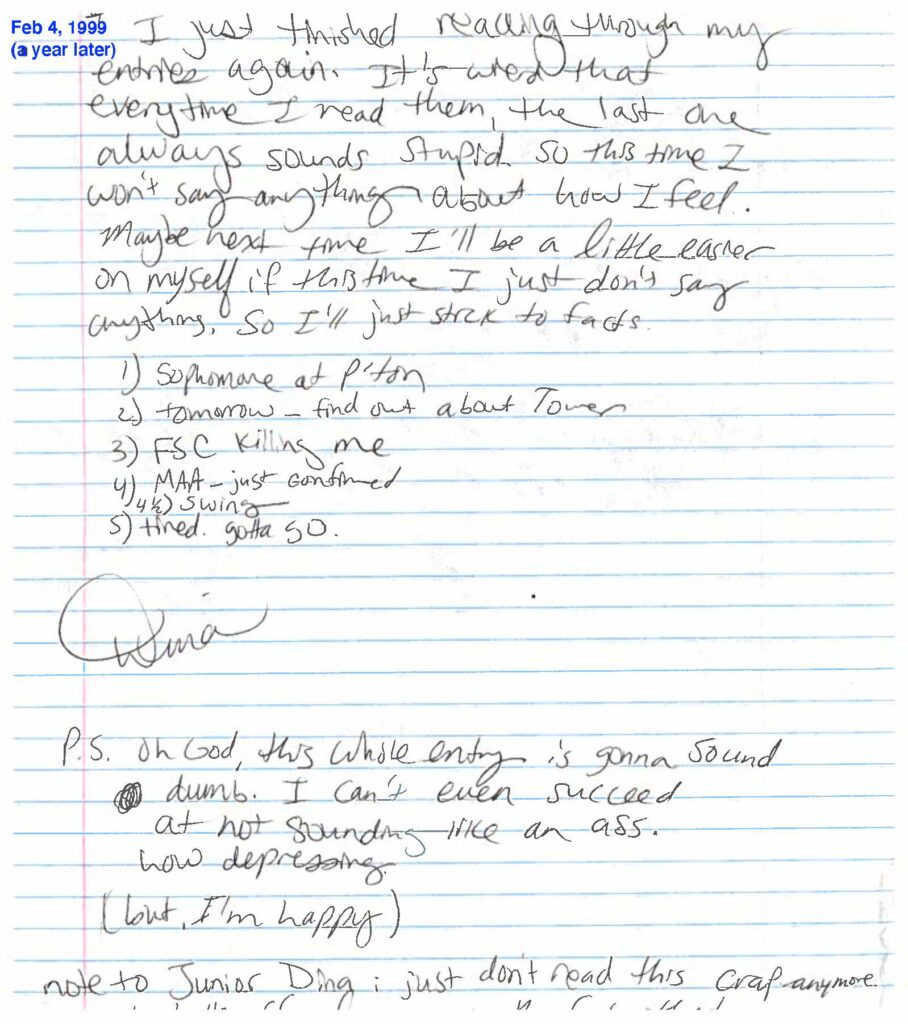 Feb 4, 1999
(a year later)
I just finished reading through my
entries again. It's wierd that
everytime I read them, the last one
always sounds stupid. So this time I
won't say anything about how I feel.
Maybe next time I'll be a little easier
on myself if this time I just don't say
anything. So I'll just stick to facts.
1) Sophomore at P'ton
2) tomorrow - find out about Tower
3) FSC killing me
4) MAA - just confirmed
4½) Swing
5) tired. gotta go.
P.S. Oh God, this whole entry is gonna sound
dumb. I can't even succeed
at not sounding like an ass.
how depressing.
(but, I'm happy)
note to Junior : just don't read this crap anymore.